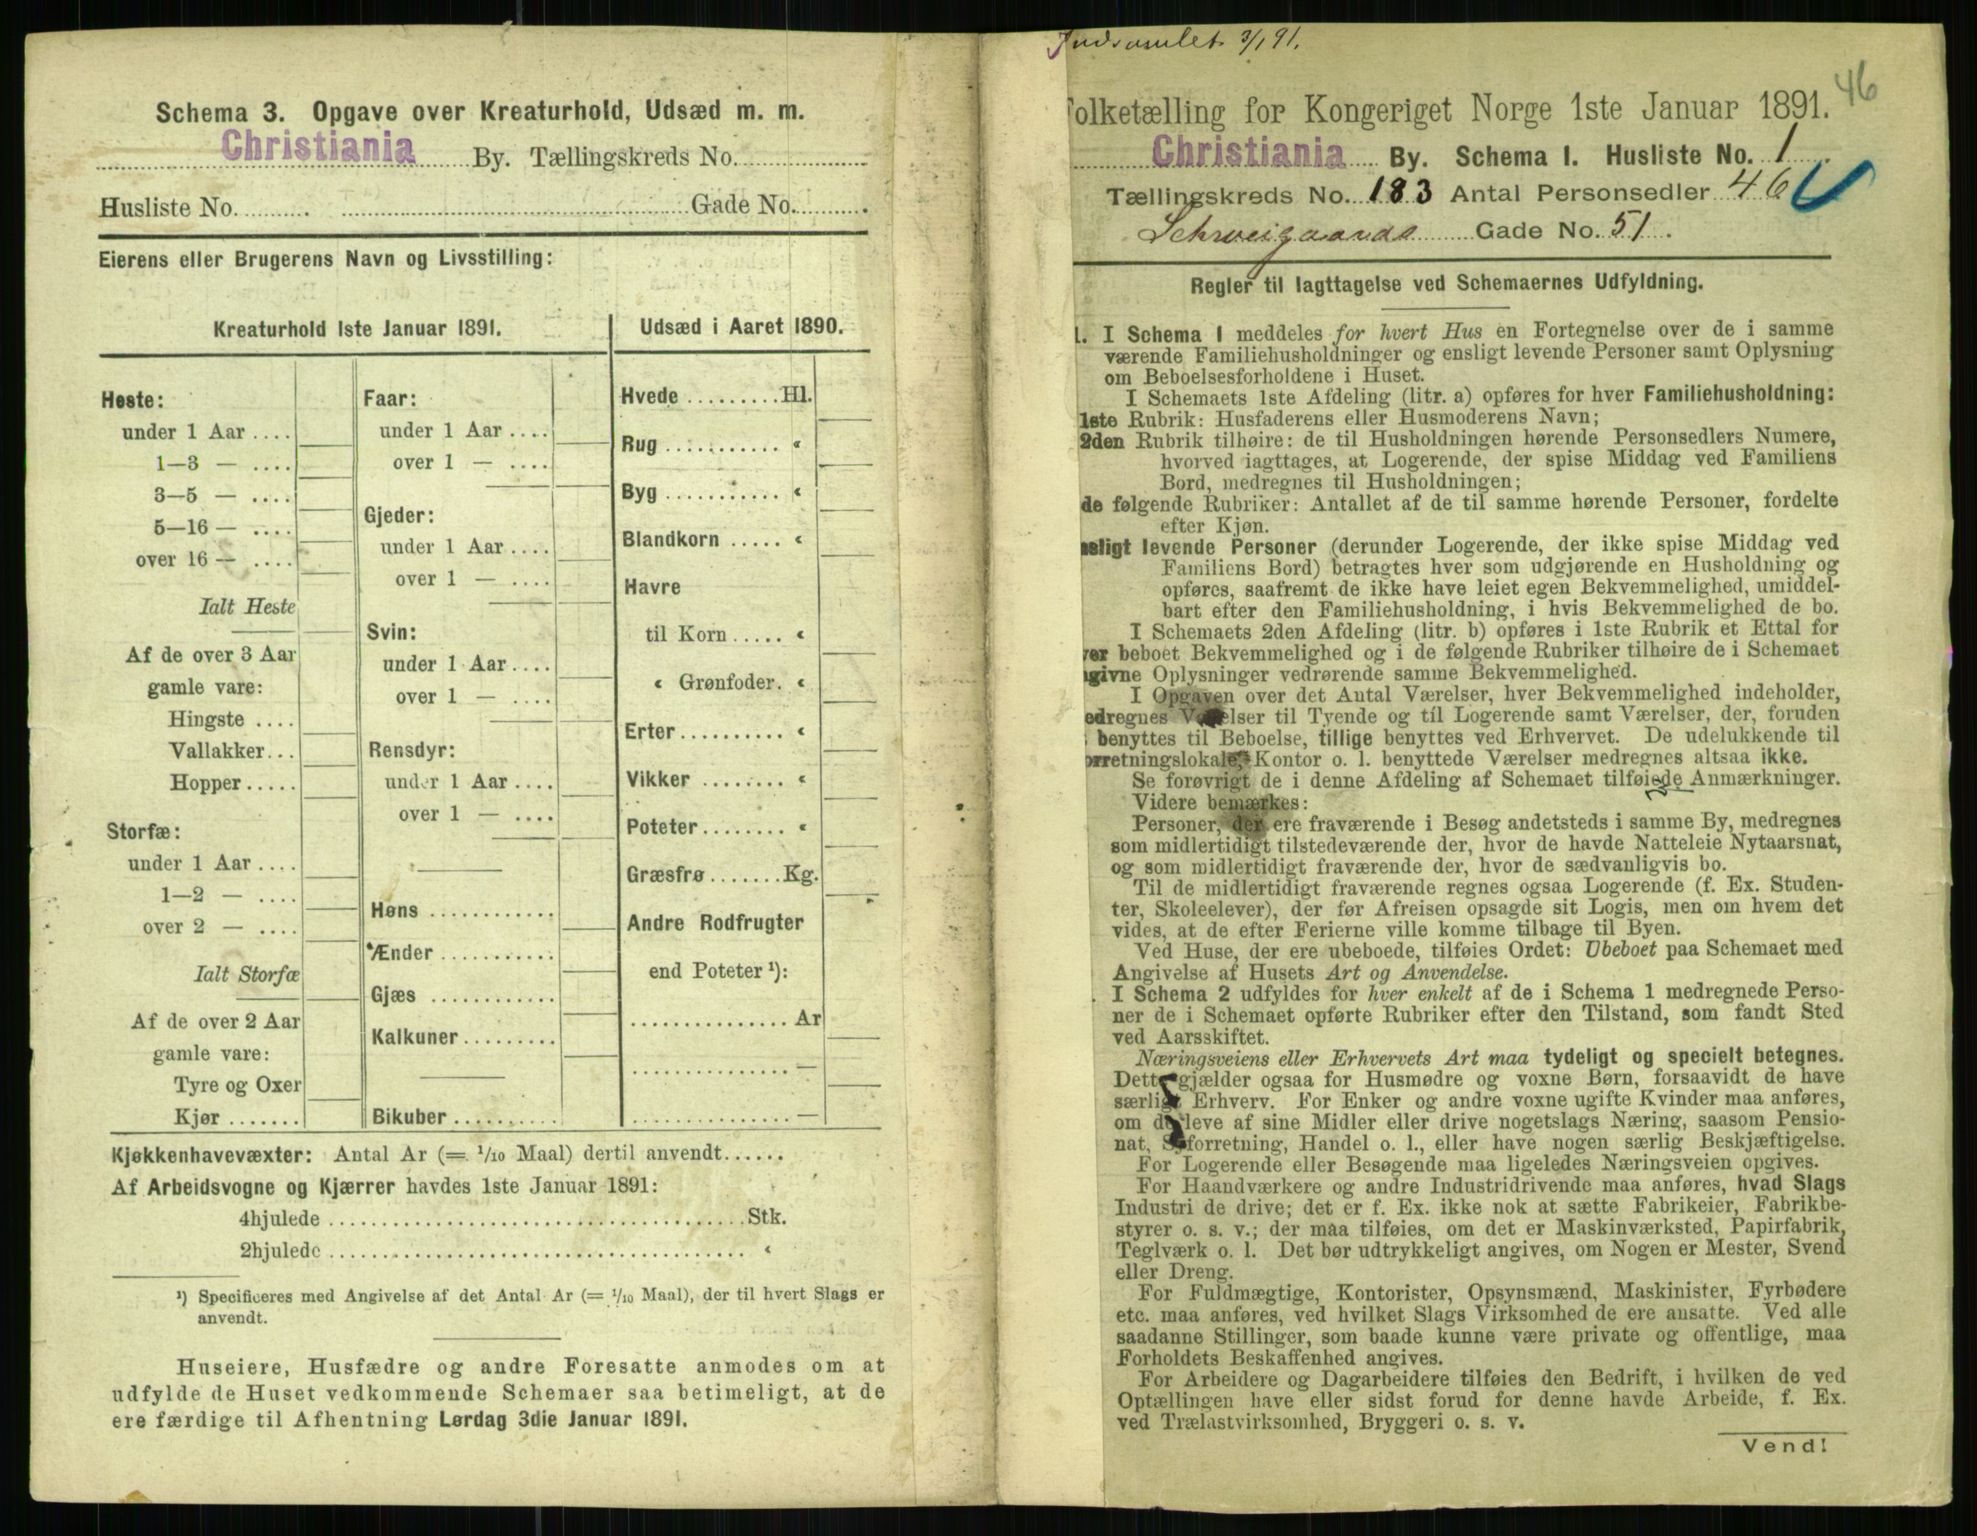 Schema 3. Opgave over Kreaturhold, Udsæd m. m.
Christiania By. Tællingskreds No.
Husliste No. Gade No.
Eierens eller Brugerens Navn og Livsstilling:
Kreaturhold 1ste Januar 1891.
Heste:
under 1 Aar ....
1—3 — ....
3—5 — ....
5—16 — ....
over 16 — ....
Ialt Heste
Af de over 3 Aar
gamle vare:
Hingste ....
Vallakker...
Hopper.....
Storfæ:
under 1 Aar ....
1—2 — ....
over 2 — ....
Ialt Storfæ
Af de over 2 Aar
gamle vare:
Tyre og Oxer
Kjør .......
Faar:
under 1 Aar ....
over 1 — ....
Gjeder:
under 1 Aar ....
over 1 — ....
Svin:
under 1 Aar ....
over 1 — ....
Rensdyr:
under 1 Aar ....
over 1 — ....
Høns ............
Ænder ...........
Gjæs ............
Kalkuner.........
Bikuber ..........
Udsæd i Aaret 1890.
Hvede .........Hl.
Rug ........... «
Byg ........... «
Blandkorn ..... «
Havre
til Korn ..... «
« Grønfoder. «
Erter.......... «
Vikker ........ «
Poteter........ «
Græsfrø .......Kg.
Andre Rodfrugter
end Poteter ¹):
............... Ar
............... —
............... —
Kjøkkenhavevæxter: Antal Ar (= 1/10 Maal) dertil anvendt......
Af Arbeidsvogne og Kjærrer havdes 1ste Januar 1891:
4hjulede ........................................Stk.
2hjulede ........................................ «
¹) Specificeres med Angivelse af det Antal Ar (= 1/10 Maal), der til hvert Slags er
anvendt.
Huseiere, Husfædre og andre Foresatte anmodes om at
udfylde de Huset vedkommende Schemaer saa betimeligt, at de
ere færdige til Afhentning Lørdag 3die Januar 1891.
Indsamlet 3/1 91.
46
Folketælling for Kongeriget Norge 1ste Januar 1891.
Christiania By. Schema 1. Husliste No. 1
Tællingskreds No. 183 Antal Personsedler 46
Schweigaards Gade No. 51.
Regler til Iagttagelse ved Schemaernes Udfyldning.
1. I Schema 1 meddeles for hvert Hus en Fortegnelse over de i samme
værende Familiehusholdninger og ensligt levende Personer samt Oplysning
om Beboelsesforholdene i Huset.
I Schemaets 1ste Afdeling (litr. a) opføres for hver Familiehusholdning:
1ste Rubrik: Husfaderens eller Husmoderens Navn;
2den Rubrik tilhøire: de til Husholdningen hørende Personsedlers Numere,
hvorved iagttages, at Logerende, der spise Middag ved Familiens
Bord, medregnes til Husholdningen;
de følgende Rubriker: Antallet af de til samme hørende Personer, fordelte
efter Kjøn.
nsligt levende Personer (derunder Logerende, der ikke spise Middag ved
Familiens Bord) betragtes hver som udgjørende en Husholdning og
opføres, saafremt de ikke have leiet egen Bekvemmelighed, umiddel-
bart efter den Familiehusholdning, i hvis Bekvemmelighed de bo.
I Schemaets 2den Afdeling (litr. b) opføres i 1ste Rubrik et Ettal for
ver beboet Bekvemmelighed og i de følgende Rubriker tilhøire de i Schemaet
ngivne Oplysninger vedrørende samme Bekvemmelighed.
I Opgaven over det Antal Værelser, hver Bekvemmelighed indeholder,
edregnes Værelser til Tyende og til Logerende samt Værelser, der, foruden
benyttes til Beboelse, tillige benyttes ved Erhvervet. De udelukkende til
orretningslokale, Kontor o. l. benyttede Værelser medregnes altsaa ikke.
Se forøvrigt de i denne Afdeling af Schemaet tilføiede Anmærkninger.
Videre bemærkes:
Personer, der ere fraværende i Besøg andetsteds i samme By, medregnes
som midlertidigt tilstedeværende der, hvor de havde Natteleie Nytaarsnat,
og som midlertidigt fraværende der, hvor de sædvanligvis bo.
Til de midlertidigt fraværende regnes ogsaa Logerende (f. Ex. Studen-
ter, Skoleelever), der før Afreisen opsagde sit Logis, men om hvem det
vides, at de efter Ferierne ville komme tilbage til Byen.
Ved Huse, der ere ubeboede, tilføies Ordet: Ubeboet paa Schemaet med
Angivelse af Husets Art og Anvendelse.
. I Schema 2 udfyldes for hver enkelt af de i Schema 1 medregnede Perso-
ner de i Schemaet opførte Rubriker efter den Tilstand, som fandt Sted
ved Aarsskiftet.
Næringsveiens eller Erhvervets Art maa tydeligt og specielt betegnes.
Dette gjælder ogsaa for Husmødre og voxne Børn, forsaavidt de have
særligt Erhverv. For Enker og andre voxne ugifte Kvinder maa anføres,
om de leve af sine Midler eller drive nogetslags Næring, saasom Pensio-
nat, Syforretning, Handel o. l., eller have nogen særlig Beskjæftigelse.
For Logerende eller Besøgende maa ligeledes Næringsveien opgives.
For Haandværkere og andre Industridrivende maa anføres, hvad Slags
Industri de drive; det er f. Ex. ikke nok at sætte Fabrikeier, Fabrikbe-
styrer o. s. v.; der maa tilføies, om det er Maskinværksted, Papirfabrik,
Teglværk o. l. Det bør udtrykkeligt angives, om Nogen er Mester, Svend
eller Dreng.
For Fuldmægtige, Kontorister, Opsynsmænd, Maskinister, Fyrbødere
etc. maa anføres, ved hvilket Slags Virksomhed de ere ansatte. Ved alle
saadanne Stillinger, som baade kunne være private og offentlige, maa
Forholdets Beskaffenhed angives.
For Arbeidere og Dagarbeidere tilføies den Bedrift, i hvilken de ved
Optællingen have eller sidst forud for denne havde Arbeide, f. Ex.
ved Trælastvirksomhed, Bryggeri o. s. v.
Vend!